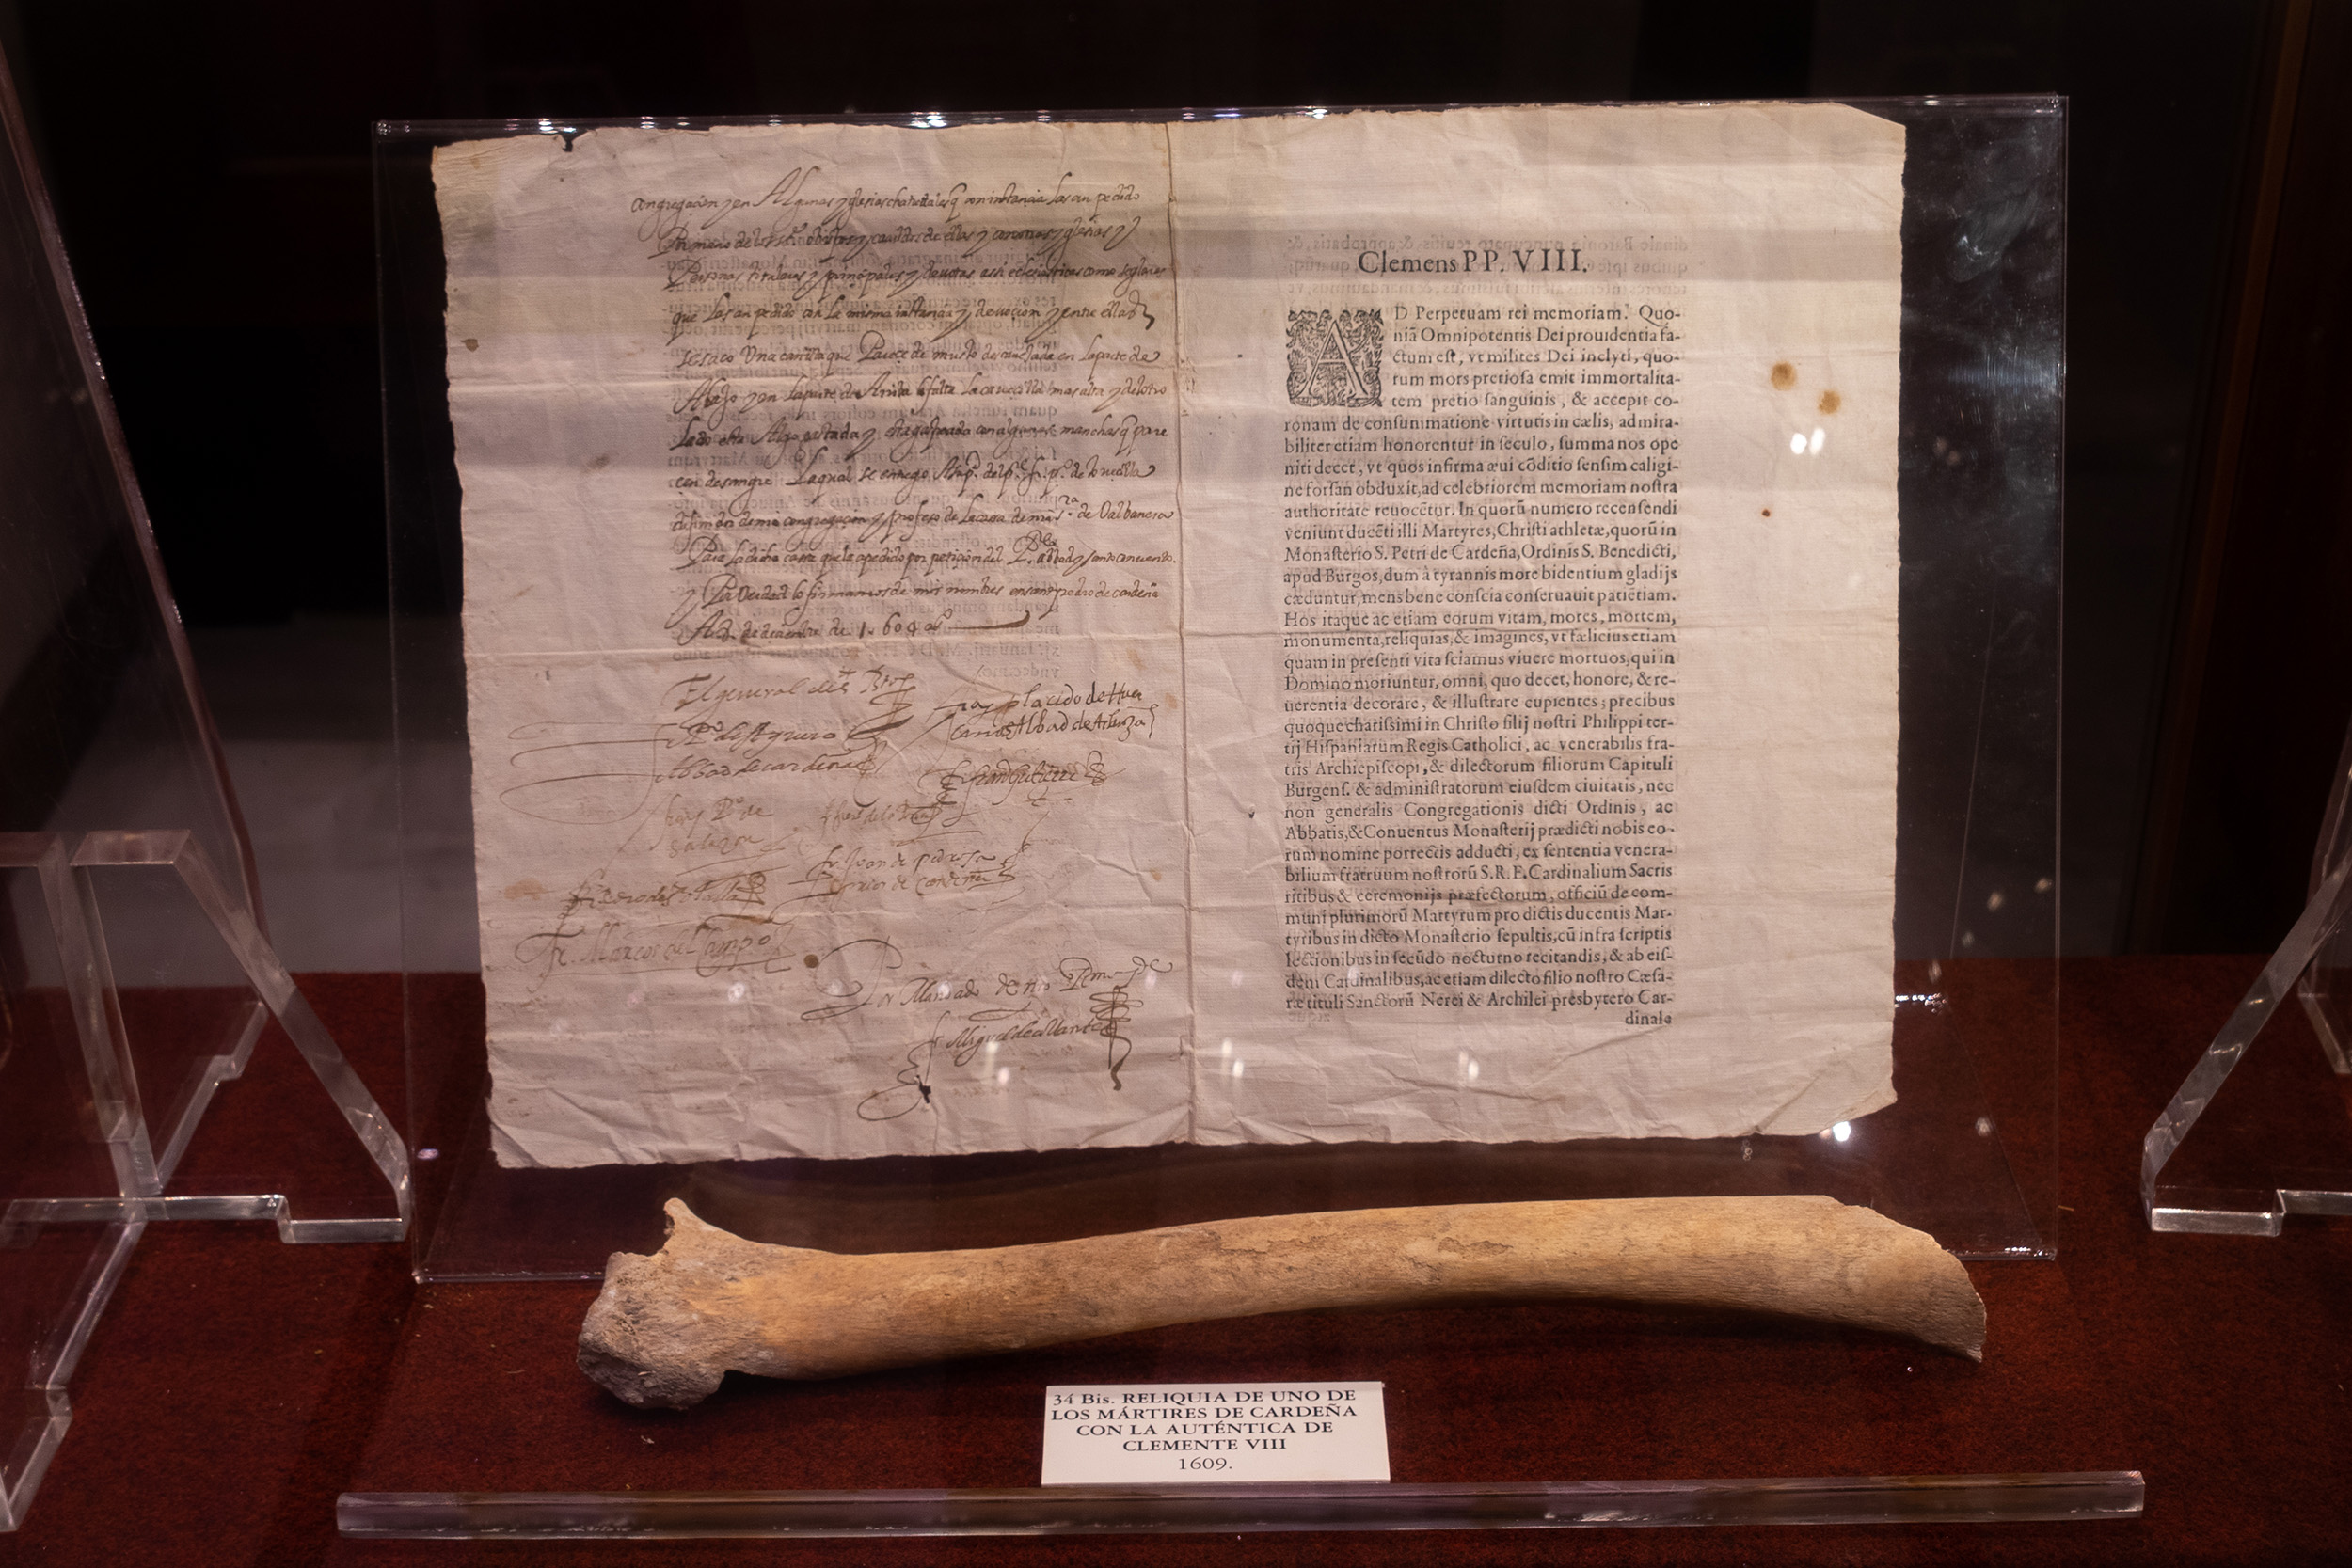 congregacion y en Algunas yglesias chatedrales q con instancia las an pedido
Por mano de los obispos y cauildos de ellas y yglesias y
Personas titulares y principales y deuotas assi eclesiasticas como seglares
que las an pedido con la misma instancia y deuocion y entre ellas
se saco Una canilla que Parece de muslo en la parte de
Abajo y en la parte de Arriba le falta la mas alta y del otro
lado esta Algo gastada y con algunas manchas q pare
çen de sangre Laqual se entrego
de mi congregacion y profeso de la cassa de de Valbanera
Para la dicha cassa que la a pedido por peticion del P. abbad y santo conuento.
y Por Verdad lo firmamos de mis nombres en sant pedro de cardeña
A de deciembre de 1604 as
El general
fray placido de
Abbad de
Abbad de cardeña
fr Juan Gutierrez
fray P.º de
salazar
fr Juan de pedrosa
prior de cardeña
Fr. Marcos del Campo
Por Mandado de
fr Miguel de
Clemens PP. VIII.
AD Perpetuam rei memoriam. Quo-
niã Omnipotentis Dei prouidentia fa-
ctum est, vt milites Dei inclyti, quo-
rum mors pretiosa emit immortalita-
tem pretio sanguinis, & accepit co-
ronam de consummatione virtutis in cælis, admira-
biliter etiam honorentur in seculo, summa nos ope
niti decet, vt quos infirma æui cõditio sensim caligi-
ne forsan obduxit, ad celebriorem memoriam nostra
authoritate reuocẽtur. In quorũ numero recensendi
veniunt ducẽti illi Martyres, Christi athletæ, quorũ in
Monasterio S. Petri de Cardeña, Ordinis S. Benedicti,
apud Burgos, dum à tyrannis more bidentium gladijs
cæduntur, mens bene conscia conseruauit patiẽtiam.
Hos itaque ac etiam eorum vitam, mores, mortem,
monumenta, reliquias, & imagines, vt fælicius etiam
quam in presenti vita sciamus viuere mortuos, qui in
Domino moriuntur, omni, quo decet, honore, & re-
uerentia decorare, & illustrare cupientes; precibus
quoque charissimi in Christo filij nostri Philippi ter-
tij Hispaniarum Regis Catholici, ac venerabilis fra-
tris Archiepiscopi, & dilectorum filiorum Capituli
Burgens. & administratorum eiusdem ciuitatis, nec
non generalis Congregationis dicti Ordinis, ac
Abbatis, & Conuentus Monasterij prædicti nobis eo-
rum nomine porrectis adducti, ex sententia venera-
bilium fratruum nostrorũ S.R.E. Cardinalium Sacris
ritibus & ceremonijs præfectorum, officiũ de com-
muni plurimorũ Martyrum pro dictis ducentis Mar-
tyribus in dicto Monasterio sepultis, cũ infra scriptis
lectionibus in secũdo nocturno recitandis, & ab eis-
dem Cardinalibus, ac etiam dilecto filio nostro Cæsa-
re tituli Sanctorũ Nerei & Archilei presbytero Car-
dinale
34 Bis. RELIQUIA DE UNO DE
LOS MÁRTIRES DE CARDEÑA
CON LA AUTÉNTICA DE
CLEMENTE VIII
1609.